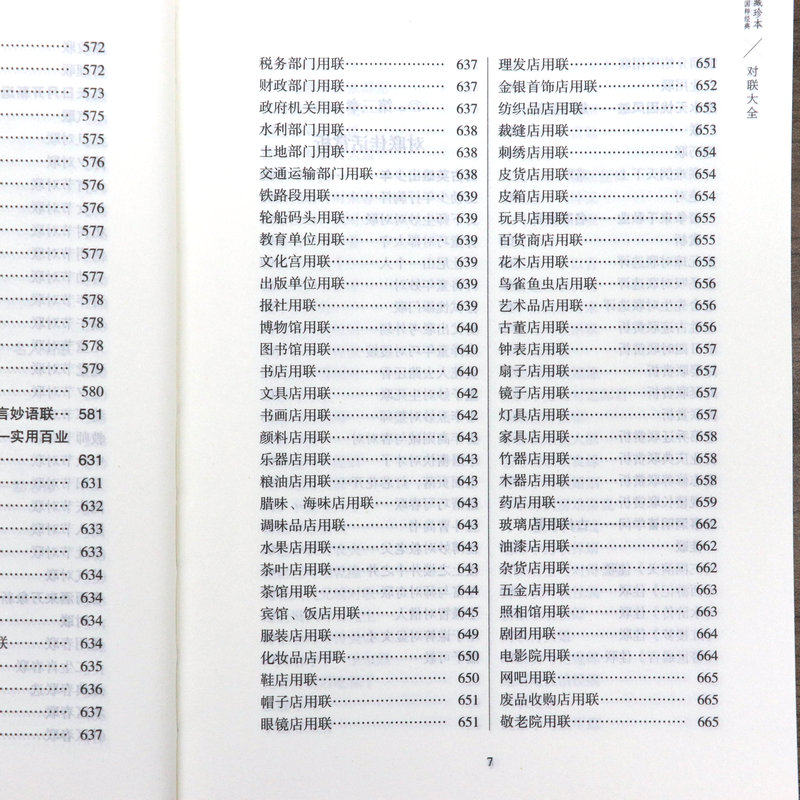 572
572
573
575
575
576
576
576
577
577
577
578
578
578
579
580
言妙语联… 581
一实用百业
631
631
632
633
633
634
634
634
联………… 634
635
636
637
637
税务部门用联………… 637
财政部门用联………… 637
政府机关用联………… 637
水利部门用联………… 638
土地部门用联………… 638
交通运输部门用联………… 638
铁路段用联………… 639
轮船码头用联………… 639
教育单位用联………… 639
文化宫用联………… 639
出版单位用联………… 639
报社用联………… 639
博物馆用联………… 640
图书馆用联………… 640
书店用联………… 640
文具店用联………… 642
书画店用联………… 642
颜料店用联………… 643
乐器店用联………… 643
粮油店用联………… 643
腊味、海味店用联………… 643
调味品店用联………… 643
水果店用联………… 643
茶叶店用联………… 643
茶馆用联………… 644
宾馆、饭店用联………… 645
服装店用联………… 649
化妆品店用联………… 650
鞋店用联………… 650
帽子店用联………… 651
眼镜店用联………… 651
理发店用联………… 651
金银首饰店用联………… 652
纺织品店用联………… 653
裁缝店用联………… 653
刺绣店用联………… 654
皮货店用联………… 654
皮箱店用联………… 654
玩具店用联………… 655
百货商店用联………… 655
花木店用联………… 655
鸟雀鱼虫店用联………… 656
艺术品店用联………… 656
古董店用联………… 656
钟表店用联………… 657
扇子店用联………… 657
镜子店用联………… 657
灯具店用联………… 657
家具店用联………… 658
竹器店用联………… 658
木器店用联………… 658
药店用联………… 659
玻璃店用联………… 662
油漆店用联………… 662
杂货店用联………… 662
五金店用联………… 663
照相馆用联………… 663
剧团用联………… 664
电影院用联………… 664
网吧用联………… 665
废品收购店用联………… 665
敬老院用联………… 665
藏珍本
国粹经典
对联大全
7